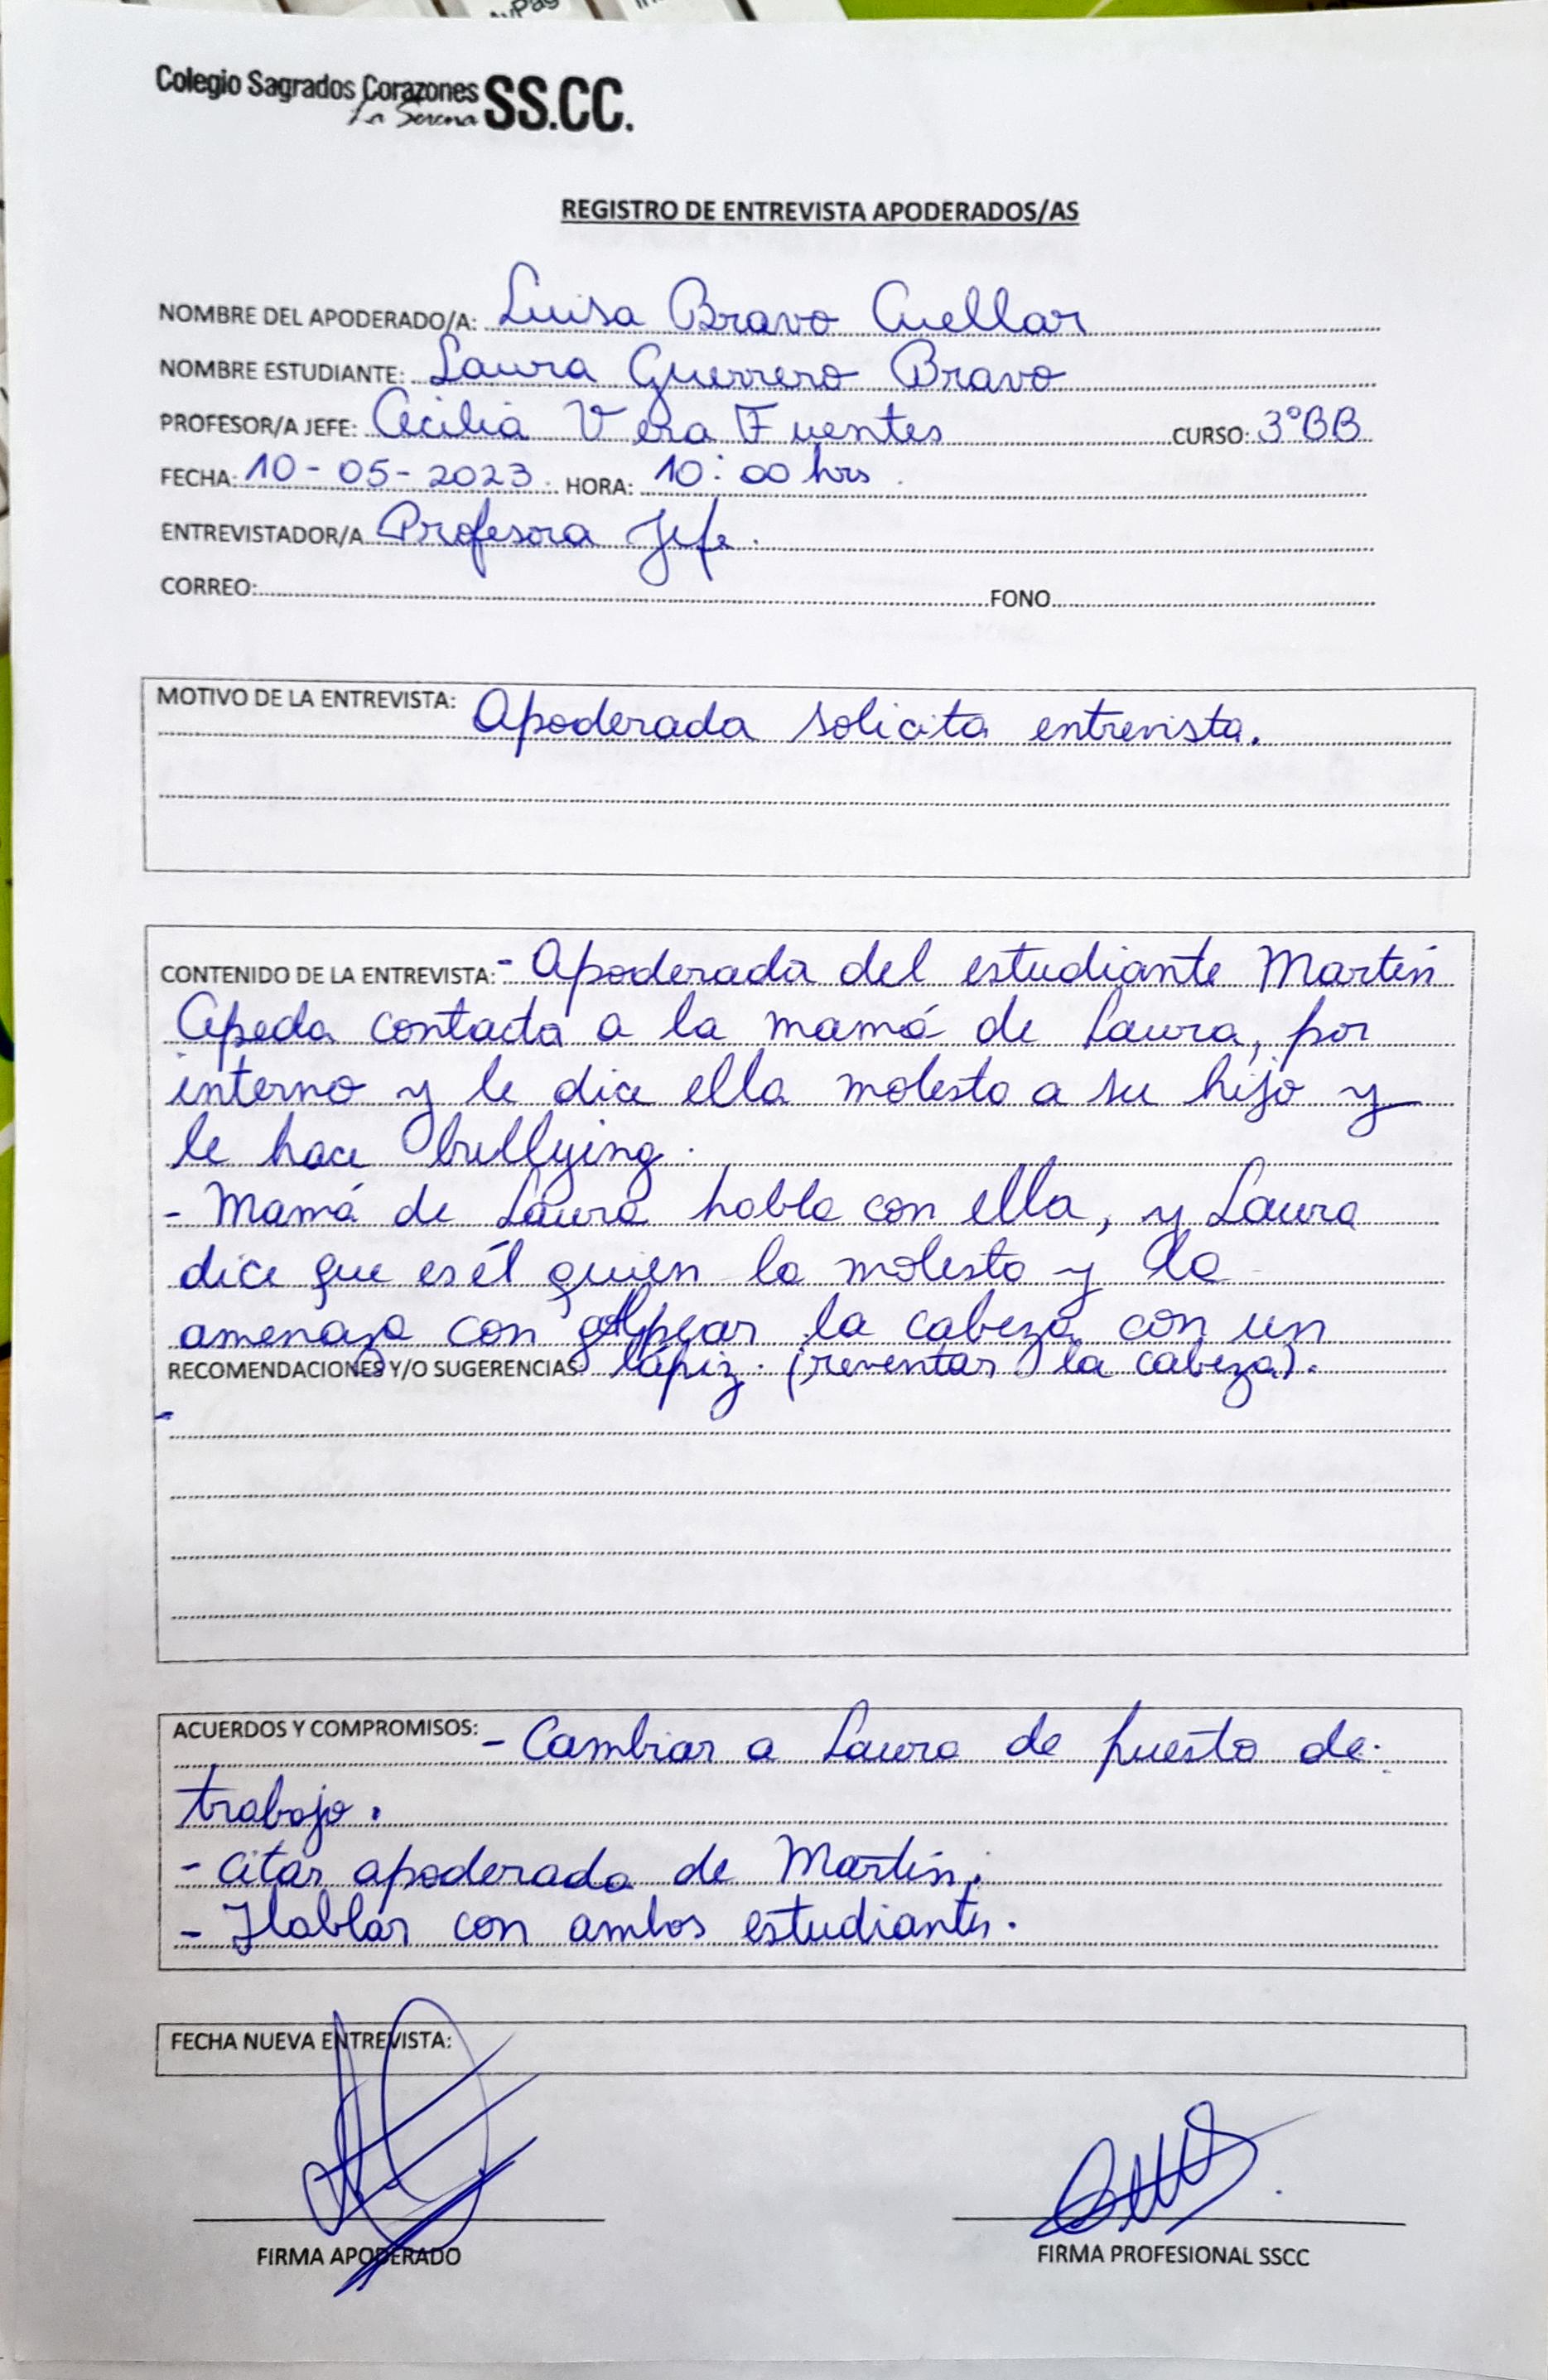 Colegio Sagrados Corazones SS.CC.
La Serena
REGISTRO DE ENTREVISTA APODERADOS/AS
NOMBRE DEL APODERADO/A: Luisa Bravo Cuellar
NOMBRE ESTUDIANTE: Laura Guerrero Bravo
PROFESOR/A JEFE: Cecilia Vera Fuentes CURSO: 3°BB
FECHA: 10-05-2023. HORA: 10:00 hrs.
ENTREVISTADOR/A Profesora Jefe.
CORREO: FONO
MOTIVO DE LA ENTREVISTA: Apoderada solicita entrevista.
CONTENIDO DE LA ENTREVISTA: - Apoderada del estudiante Martín
contacta a la mamá de Laura, por
interno y le dice ella molesta a su hijo y
le hace bullying.
- Mamá de Laura habla con ella, y Laura
dice que es él quien la molesta y la
amenaza con golpear la cabeza con un
RECOMENDACIONES Y/O SUGERENCIAS: lápiz. (reventar la cabeza).
-
ACUERDOS Y COMPROMISOS: - Cambiar a Laura de puesto de
trabajo.
- Citar apoderada de Martín.
- Hablar con ambos estudiantes.
FECHA NUEVA ENTREVISTA:
FIRMA APODERADO FIRMA PROFESIONAL SSCC